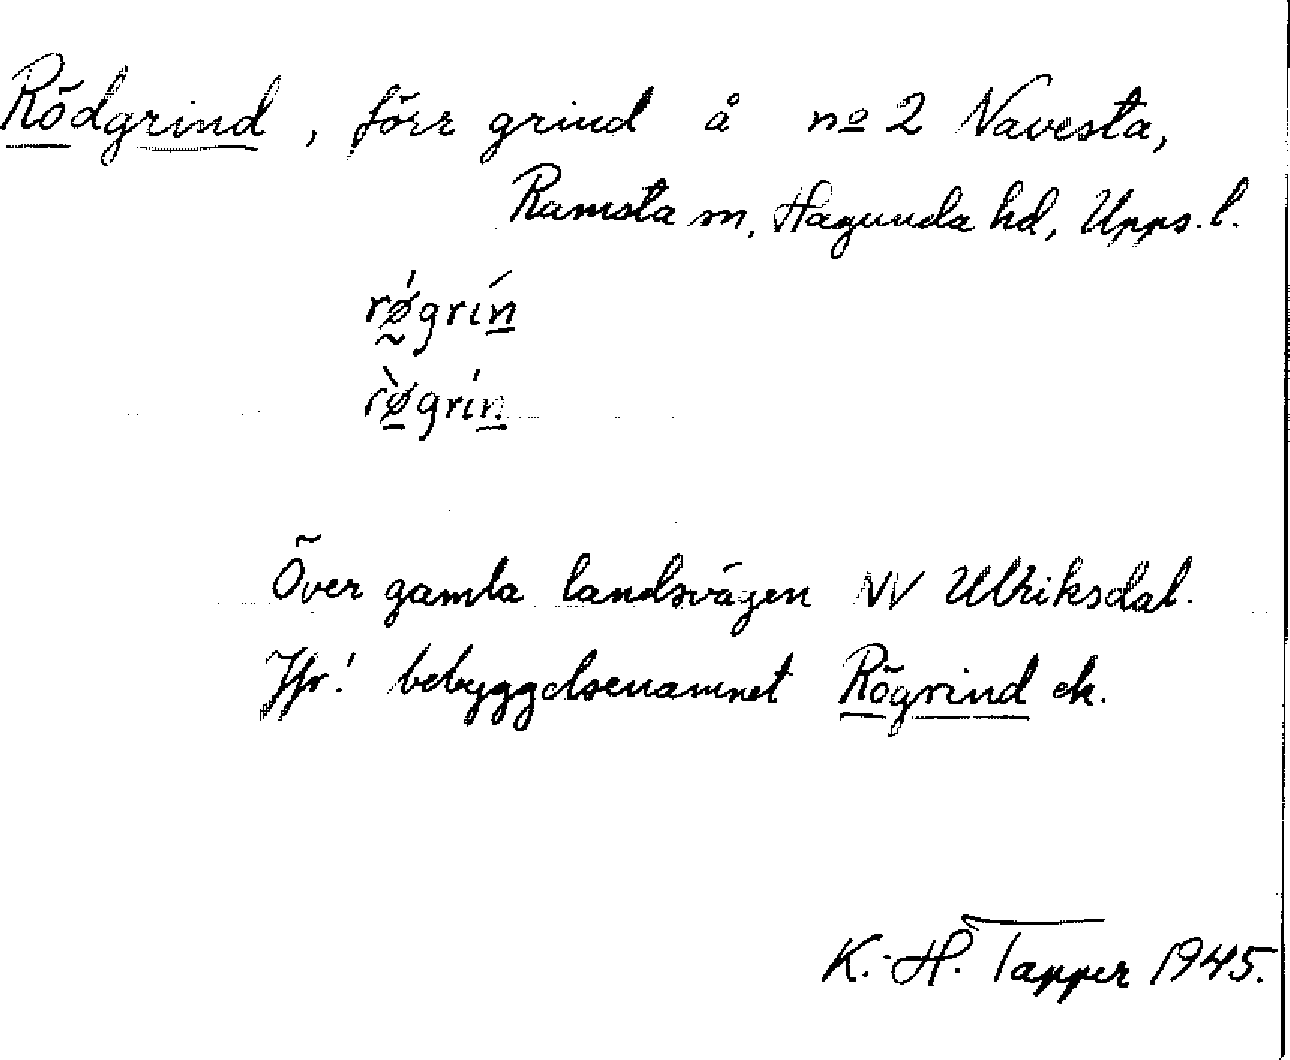 Rödgrind, förr grind å no 2 Navesta,
Ramsta sn, Hagunda hd, Upps. l.
rǿgrín
rø̀grín
Över gamla landsvägen NV Ulriksdal.
Jfr! bebyggelsenamnet Rögrind ek.
K.-H. Tapper 1945.